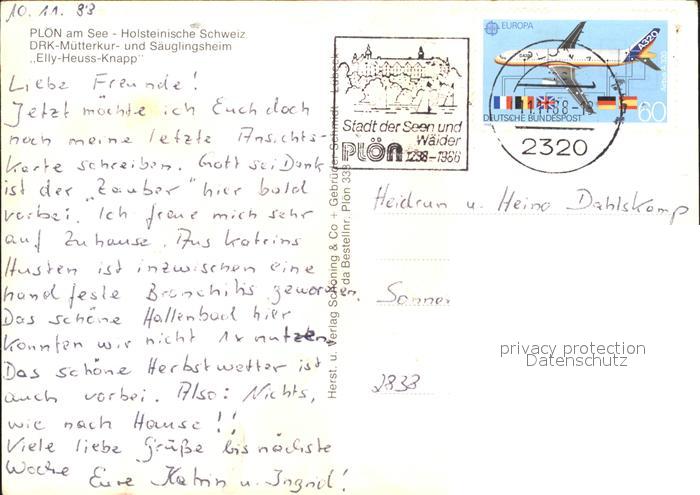 10.11.88
PLÖN am See - Holsteinische Schweiz
DRK-Mütterkur- und Säuglingsheim
„Elly-Heuss-Knapp"
Liebe Freunde!
Jetzt möchte ich Euch doch
noch meine letzte Ansichts-
karte schreiben. Gott sei Dank
ist der "Zauber" hier bald
vorbei. Ich freue mich sehr
auf Zuhause. Aus Katrins
Husten ist inzwischen eine
handfeste Bronchitis geworden.
Das schöne Hallenbad hier
konnten wir nicht 1x nutzen.
Das schöne Herbstwetter ist
auch vorbei. Also: Nichts,
wie nach Hause!!
Viele liebe Grüße bis nächste
Woche Eure Katrin u. Ingrid!
Herst. u. Verlag Schöning & Co + Gebrüder Schmidt Lübeck
da Bestellnr. Plön 338
Stadt der Seen und
Wälder
PLÖN 1236-1986
EUROPA
A320
DEUTSCHE BUNDESPOST
60
2320
Heidrun u. Heino Dahlskamp
2838
privacy protection
Datenschutz